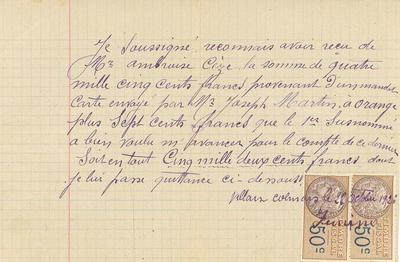 Je soussigné reconnais avoir reçu de
Mr ambroise la somme de quatre
mille cinq cents francs provenant d'un mandat
Carte envoyé par Mr Joseph Martin, à Orange
plus Sept cents francs que le 1er Susnommé
a bien voulu m'avancer pour le compte de ce dernier
Soit en tout Cinq mille deux cents francs dont
je lui passe quittance ci-dessous
Villars colmars le octobre
50c
50c